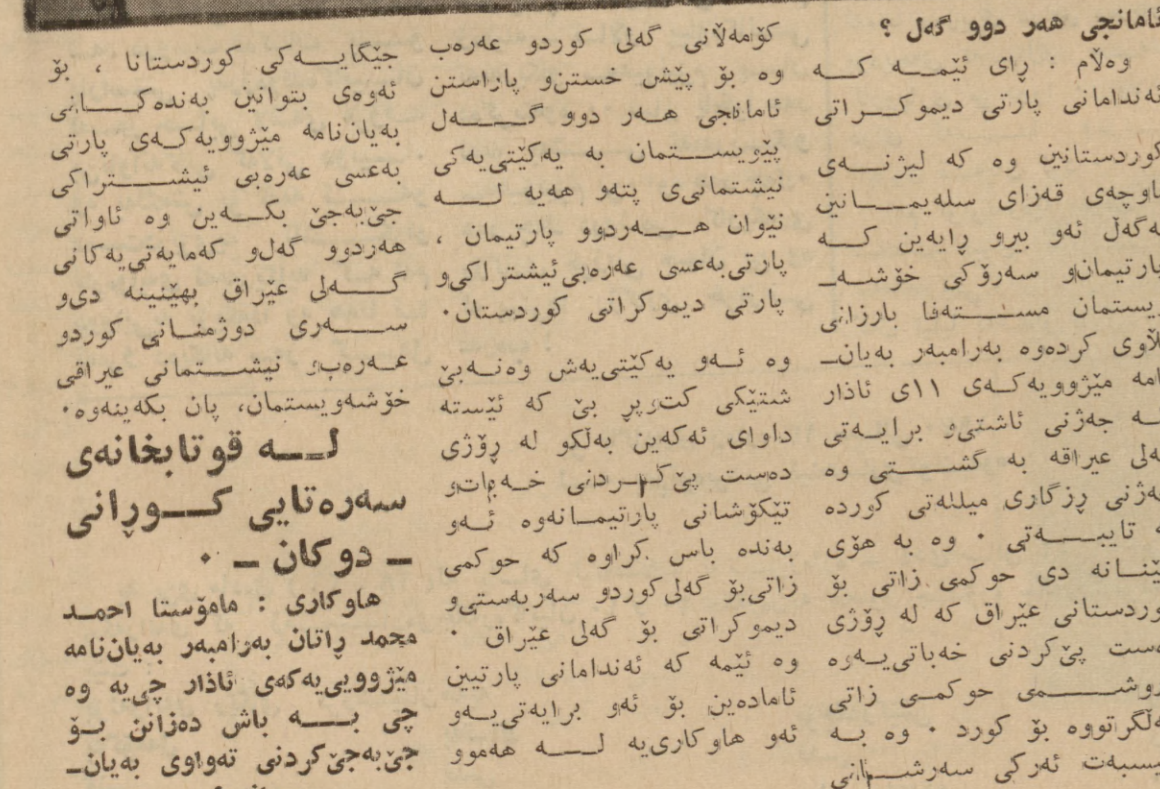 ئامانجی هەر دوو گەل ؟
وەڵام : ڕای ئێمــە کــە
ئەندامانی پارتی دیموکـراتی
کوردستانین وە کە لیژنــەی
ناوچەی قەزای سلەیمــانین
لەگەڵ ئەو بیرو ڕایەین کــە
پارتیمان و سەرۆکی خۆشەـ
ویستمان مستــەفا بارزانی
بڵاوی کردەوە بەرامبەر بەیانـ
نامە مێژوویەکــەی ١١ی ئادار
لــە جەژنی ئاشتی و برایــەتی
گەلی عیراقە بە گشــتی وە
جەژنی ڕزگاری میللەتی کوردە
بە تایبــەتی ٠ وە بە هۆی
هێنــانە دی حوکمی زاتی بۆ
کوردستانی عێراق کە لە ڕۆژی
دەست پێ کردنی خەباتی یــەوە
دروشــمی حوکمــی زاتی
هەڵگرتووە بۆ کورد ٠ وە بــە
نیسبەت ئەرکی سەرشــانی
کۆمەڵانی گەلی کوردو عەرەب
وە بۆ پێش خستن و پاراستن
ئامانجی هــەر دوو گــەل
پێویســتمان بە یەکێتی یەکی
نیشتمانی ی پتەو هەیە لــە
نێوان هــەردوو پارتیمان ،
پارتی بەعسی عەرەبی ئیشتراکی و
پارتی دیموکراتی کوردستان٠
وە ئــەو یەکێتی یەش وەنــەبێ
شتێکی کت وپڕ بێ کە ئێستە
داوای ئەکەین بەڵکو لە ڕۆژی
دەست پێ کــردنی خــەبات و
تێکۆشانی پارتیمــانەوە ئــەو
بەندە باس کراوە کە حوکمی
زاتی بۆ گەلی کوردو سەربەستی و
دیموکراتی بۆ گەلی عێراق ٠
وە ئێمە کە ئەندامانی پارتیین
ئامادەین بۆ ئەو برایەتی یــەو
ئەو هاوکاری یە لــە هەموو
جێگایــەکی کوردستانا ، بۆ
ئەوەی بتوانین بەندەکــانی
بەیان نامە مێژوویەکــەی پارتی
بەعسی عەرەبی ئیشــتراکی
جێ بەجێ بکــەین وە ئاواتی
هەردوو گەل و کەمایەتی یەکانی
گــەلی عێراق بهێنینە دی و
ســەری دوژمنــانی کوردو
عــەرەب و نیشــتمانی عیراقی
خۆشەویستمان، پان بکەینەوە٠
لــە قوتابخانەی
سەرەتایی کــوڕانی
ـ دوکان ـ ٠
هاوکاری : مامۆستا احمـد
محمد ڕاتان بەرامبەر بەیان نامە
مێژوویی یەکەی ئادار چی یە وە
چی بــە باش دەزانن بــۆ
جێ بەجێ کردنی تەواوی بەیانـ